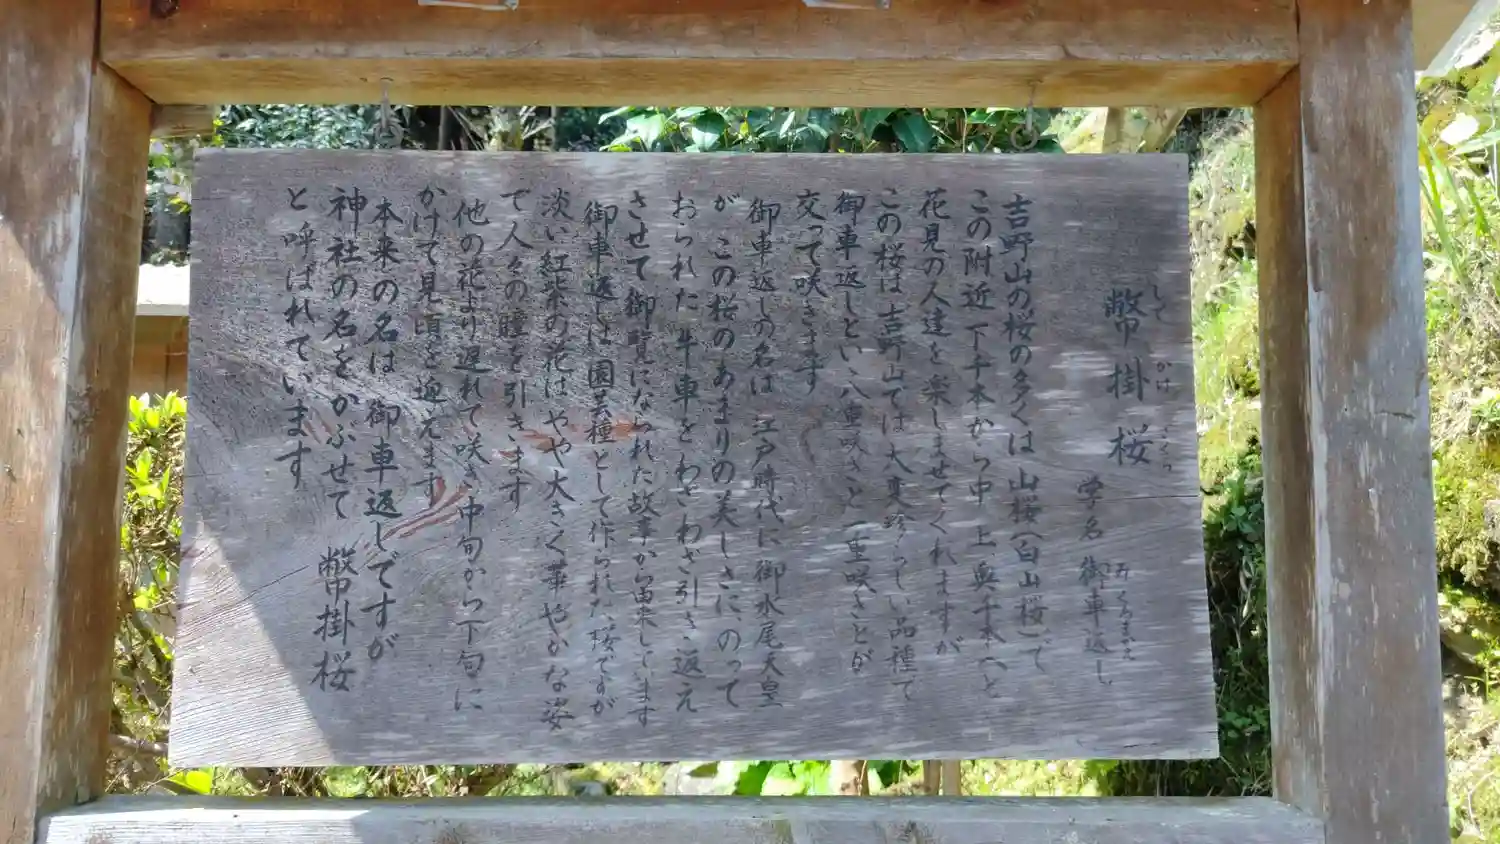 しで かけ ざくら
幣掛桜
学名 御車返し
みくるまがえ
吉野山の桜の多くは 山桜(白山桜)で
この附近 下千本から中 上 奥千本へと
花見の人達を楽しませてくれますが
この桜は 吉野山では大変珍らしい品種で
御車返しといい八重咲きと一重咲きとが
交って咲きます
御車返しの名は 江戸時代に御水尾天皇
が この桜のあまりの美しさに のって
おられた 牛車をわざわざ引き返え
させて 御覧になられた故事から由来しています
御車返しは園芸種として作られた桜ですが
淡い紅紫の花は やや大きく華やかな姿
で人々の瞳を引きます
他の花より遅れて咲き 中旬から下旬に
かけて見頃を迎えます
本来の名は 御車返しですが
神社の名をかぶせて 幣掛桜
と呼ばれています